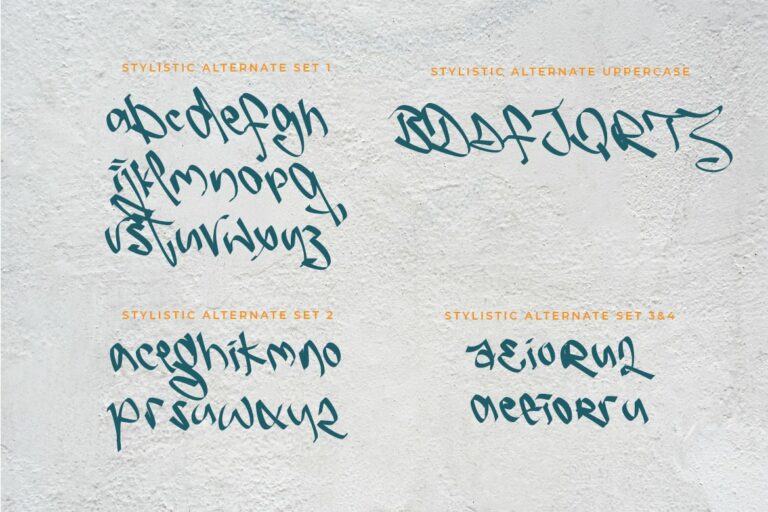 STYLISTIC ALTERNATE SET 1
abcdefgh
ijklmnopq
rstuvwxyz
STYLISTIC ALTERNATE UPPERCASE
BDAFJQRTZ
STYLISTIC ALTERNATE SET 2
aceghikmno
prsuwxyz
STYLISTIC ALTERNATE SET 3&4
aeioru2
aefiorru